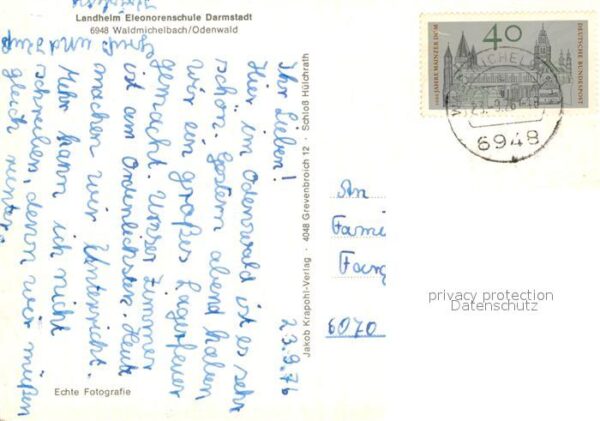 Landheim Eleonorenschule Darmstadt
6948 Waldmichelbach/Odenwald
23.9.76
Ihr Lieben!
Hier im Odenwald ist es sehr
schön. Gestern abend haben
wir ein großes Lagerfeuer
gemacht. Unser Zimmer
ist am Ordenlichsten. Heute
machen wir Unterricht.
Mehr kann ich nicht
schreiben, denn wir müßen
gleich runter.
Echte Fotografie
Jakob Krapohl-Verlag · 4048 Grevenbroich 12 · Schloß Hülchrath
40
DEUTSCHE BUNDESPOST
1000 JAHRE MAINZER DOM
6948
An
Fami
Fang
6070
privacy protection
Datenschutz